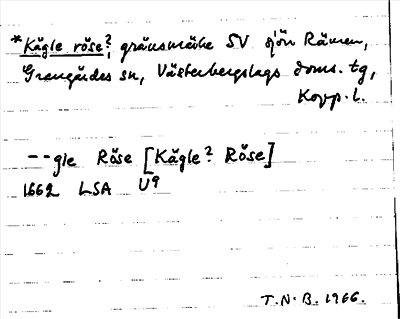 *Kägle röse?, gränsmärke SV sjön Rämen,
Grangärdes sn, Västerbergslags doms. tg,
Kopp. l.
--gle Röse [Kägle? Röse]
1662 LSA U9
T.N.B. 1966.